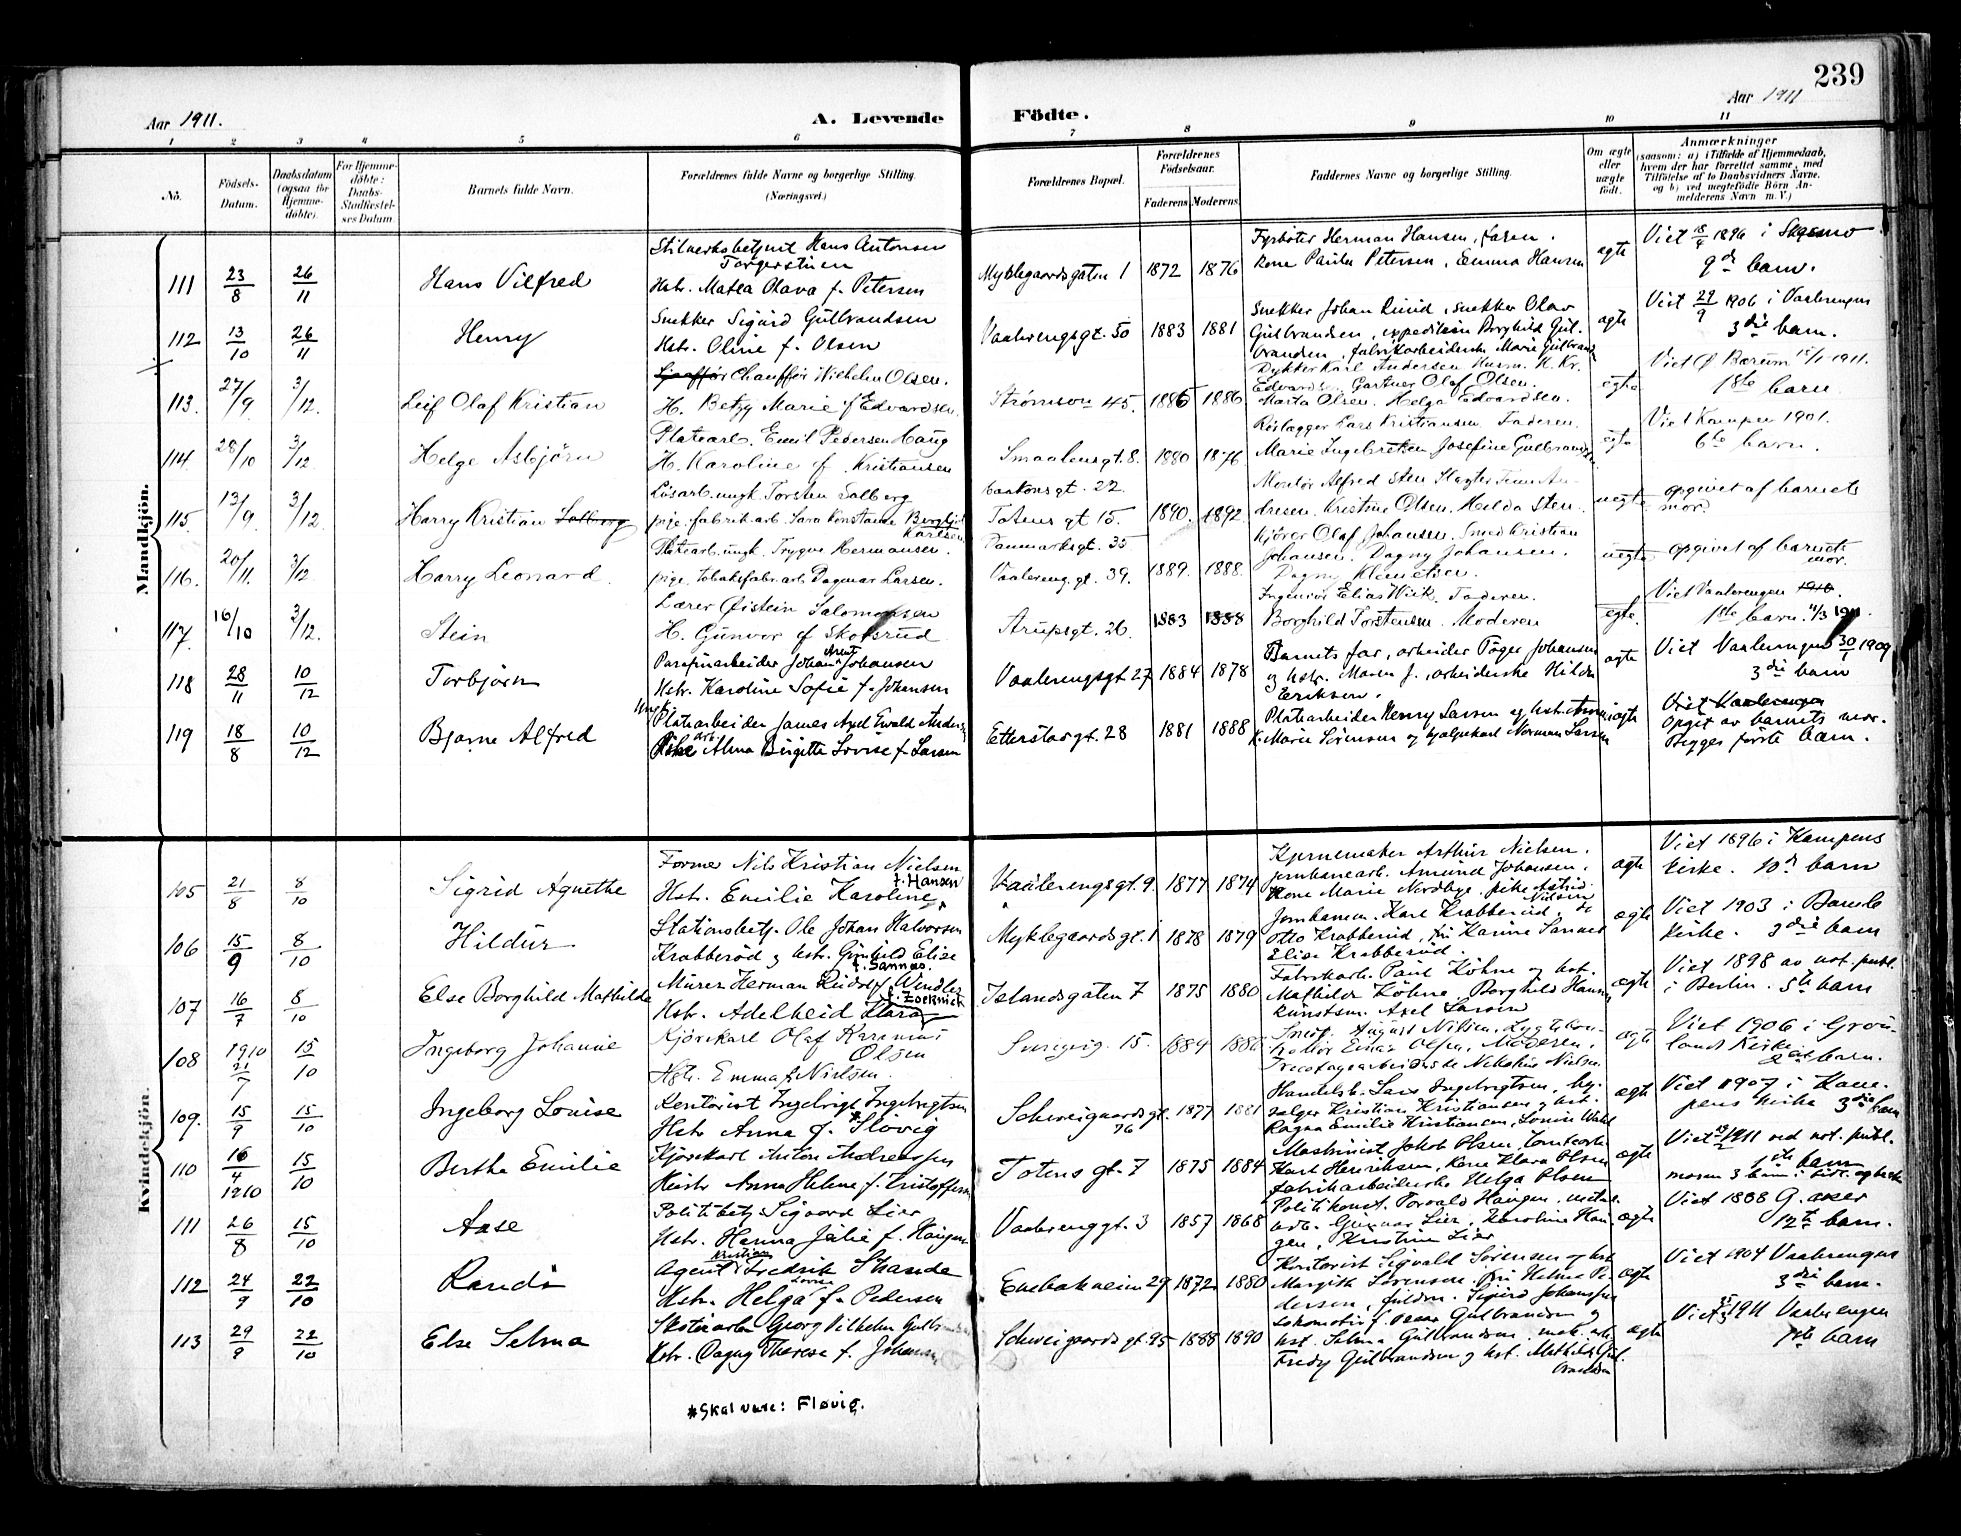 239
Aar 1911.
A. Levende
Födte.
Aar 1911
1 2 3 4 5 6 7 8 9 10 11
No.
Födsels-Datum.
Daabsdatum (ogsaa for Hjemmedøbte).
For Hjemmedöbte: Daabs-Stadfæstelses Datum.
Barnets fulde Navn.
Forældrenes fulde Navne og borgerlige Stilling.
(Næringsvei.)
Forældrenes Bopæl.
Forældrenes Födselsaar.
Faderens. Moderens.
Faddernes Navne og borgerlige Stilling.
Om ægte eller uægte födt.
Anmærkninger
(saasom: a) i Tilfælde af Hjemmedaab, hvem der har forrettet samme, med Tilföielse af to Daabsvidners Navne. og b) ved uægtefödte Börn Anmelderens Navn m. V.)
Mandkjön.
111 23/8 26/11 Hans Vilfred
Hans Antonsen
Torgerstuen
Hstr. Matea Olava f. Petersen
Myklegaardsgaten 1 1872 1876
Fyrböter Herman Hansen, faren.
Petersen, Emma Hansen
ægte
Viet 1896 i
9de barn.
112 13/10 26/11 Henry
Snekker Sigurd Gulbrandsen
Hstr. Oline f. Olsen
Vaalerengsgt. 50 1883 1881
Snekker Johan Lund, snekker Olav
ægte
Viet 29/9 1906 i Vaalerengen
3die barn.
113. 27/9 3/12. Leif Olaf Kristian
Chauffør Wilhelm Olsen.
H. Betzy Marie f Edvardsen.
Strømsv. 45. 1885 1886
Gartner Olaf Olsen.
Marta Olsen. Helga Edvardsen.
egte
Bærum 1911.
1ste barn
114. 28/10 3/12 Helge Asbjörn
Platearb. Emil Pedersen Haug
H. Karoline f Kristiansen
Smaalensgt. 8. 1880 1876
Rörlægger Lars Kristiansen. Faderen.
Marie Ingebretsen Josefine Gulbrandsen
egte
Viet Kampen 1901.
6te barn.
115. 13/9. 3/12. Harry Kristian Solberg
ungk. Torsten Solberg
pige. fabrikarb. Sara Konstanse Borghild Karlsen
gt. 22
Totens gt 15. 1890. 1892
Montör Alfred Sten
Kristine Olsen. Helda Sten.
uegte
opgivet af barnets mor
116. 20/11. 3/12 Harry Leonard.
Platearb. ungk. Trygve Hermansen.
pige. Tobaksfabr.arb. Dagmar Larsen.
Danmarksgt. 35
Vaalereng. gt. 39. 1889. 1888
Kjörer Olaf Johansen. Smed Kristian
Johansen. Dagny Johansen.
Dagny Klemetsen.
uegte
opgivet af barnets mor.
117. 16/10 3/12. Stein
Lærer Øistein Salomonsen
H. Gunvor f Skotsrud
Arupsgt. 26 1883 1888
Ingeniør Elias Wiik. Faderen.
Borghild Torstensen. Moderen
egte.
Viet Vaalerengen 1910.
1ste barn. 11/3 1911.
118 28/11 10/12 Torbjørn
Parafinarbeider Johan Arnt Johansen
Hstr. Karoline Sofie f. Johansen
Vaalerengsgt 27 1884 1878
Barnets far, arbeider Töger Johansen
og hstr. Maren J., arbeiderske Hilda
Eriksen.
ægte
Viet Vaalerengen 30/1 1909
3die barn
119 18/8 10/12 Bjarne Alfred
Ungk.
Platearbeider James Axel Ewald Andersen
Alma Birgitte Lovise f. Larsen
Etterstadgt. 28 1881 1888
Platearbeider Henry Larsen og hstr. Anna
K. Marie Sørensen og hjælpekarl Norman Larsen
uægte
Viet Vaalerengen
Opgit av barnets mor.
Begges første barn.
Kvindekjön.
105 21/8 8/10 Sigrid Agnethe
Former Nils Kristian Nielsen
Hstr. Emilie Karoline f. Hansen
Vaalerengsgt. 9. 1877 1874
Kjernemaker Arthur Nielsen.
jernbanearb. Amund Johansen.
Kone Marie Nordbye, pike Astrid
Nielsen
ægte
Viet 1896 i Kampens
kirke. 10de barn
106 15/9 8/10 Hildur
Stationsbetj. Ole Johan Halvorsen
Krabberød og hstr. Gunhild Elise
f. Sannes.
Myklegaardsgt. 1 1878 1879
Jernbanem. Karl Krabberød,
Otto Krabberød, fru Karine Sannes
Elise Krabberød.
ægte
Viet 1903 i Bamle
kirke. 3die barn
107 16/7 8/10 Else Borghild Mathilde
Murer Herman Rudolf Wendler
Hstr. Adelheid Klara
Islandsgaten 7 1875 1880
Fabrikarb. Paul Köhne og hst.
Mathilde Köhne, Borghild Hansen
kunstm. Axel Larsen
ægte
Viet 1898 av not. publ.
i Berlin. 5te barn
108 1910 21/7 15/10 Ingeborg Johanne
Kjörekarl Olaf
Olsen
Hstr. Emma f. Nielsen.
15. 1884
Smed August Nilsen,
Moderen,
ægte
Viet 1906 i Grønlands Kirke
2det barn.
109. 15/9 15/10 Ingeborg Louise
Kontorist Ingebrigt Ingebrigtsen
Hstr Anna f. *Sløvig
Schweigaardsgt. 76 1877 1881
Handelsb. Lars Ingebrigtsen, by-
selger Kristian Kristiansen og hst.
Ragna Emilie Kristiansen, Louise
ægte
Viet 1907 i Kampens kirke 3die barn
110 16/4 1910 15/10 Berthe Emilie
Kjörekarl Anton Andreassen
Hustr Anna Helene f. Kristoffersen
Totens gt. 7 1875 1884
Maskinist Jakob Olsen
Karl Henriksen, Kone Klara Olsen
fabrikarbeiderske Helga Olsen
ægte
Viet 1911 ved not. publ.
1ste barn
111 26/8 15/10 Aase
Politibetj. Sigvard Lier
Hstr. Hanna Julie f. Haugen
Vaalerenggt. 3 1857 1868
Politikonst. Torvald Haugen,
Gunnar Lier, Karoline Haugen, Kristine Lier
ægte
Viet 1888
12te barn.
112 24/9 22/10 Randi
Agent Kristian Fredrik Strande
Hstr. Helga Lovise f. Pedersen
Enebakveien 29 1872 1880
Kontorist Sigvald Sørensen og hst
Margith Sørensen, fru Helma Pedersen, fuldm. Sigurd Johansen
ægte
Viet 1904 Vaalerengens
3die barn.
113 29/9 22/10 Else Selma
Georg Vilhelm
Hstr. Dagny Therese f. Johansen
Schweigaards gt. 95 1888 1890
Gulbrandsen og
hst. Selma Gulbrandsen,
Fredy Gulbrandsen og hst. Mathilde Gulbrandsen
ægte
Viet 1911 Vaalerengen
1ste barn
*Skal være: Fløvig.